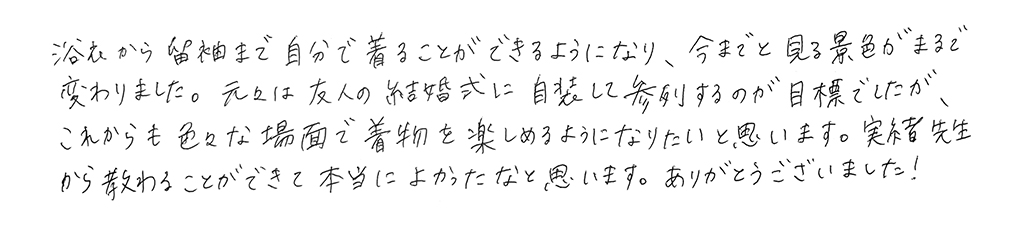 浴衣から留袖まで自分で着ることができるようになり、今までと見る景色がまるで
変わりました。元々は友人の結婚式に自装して参列するのが目標でしたが、
これからも色々な場面で着物を楽しめるようになりたいと思います。実緒先生
から教わることができて本当によかったなと思います。ありがとうございました！